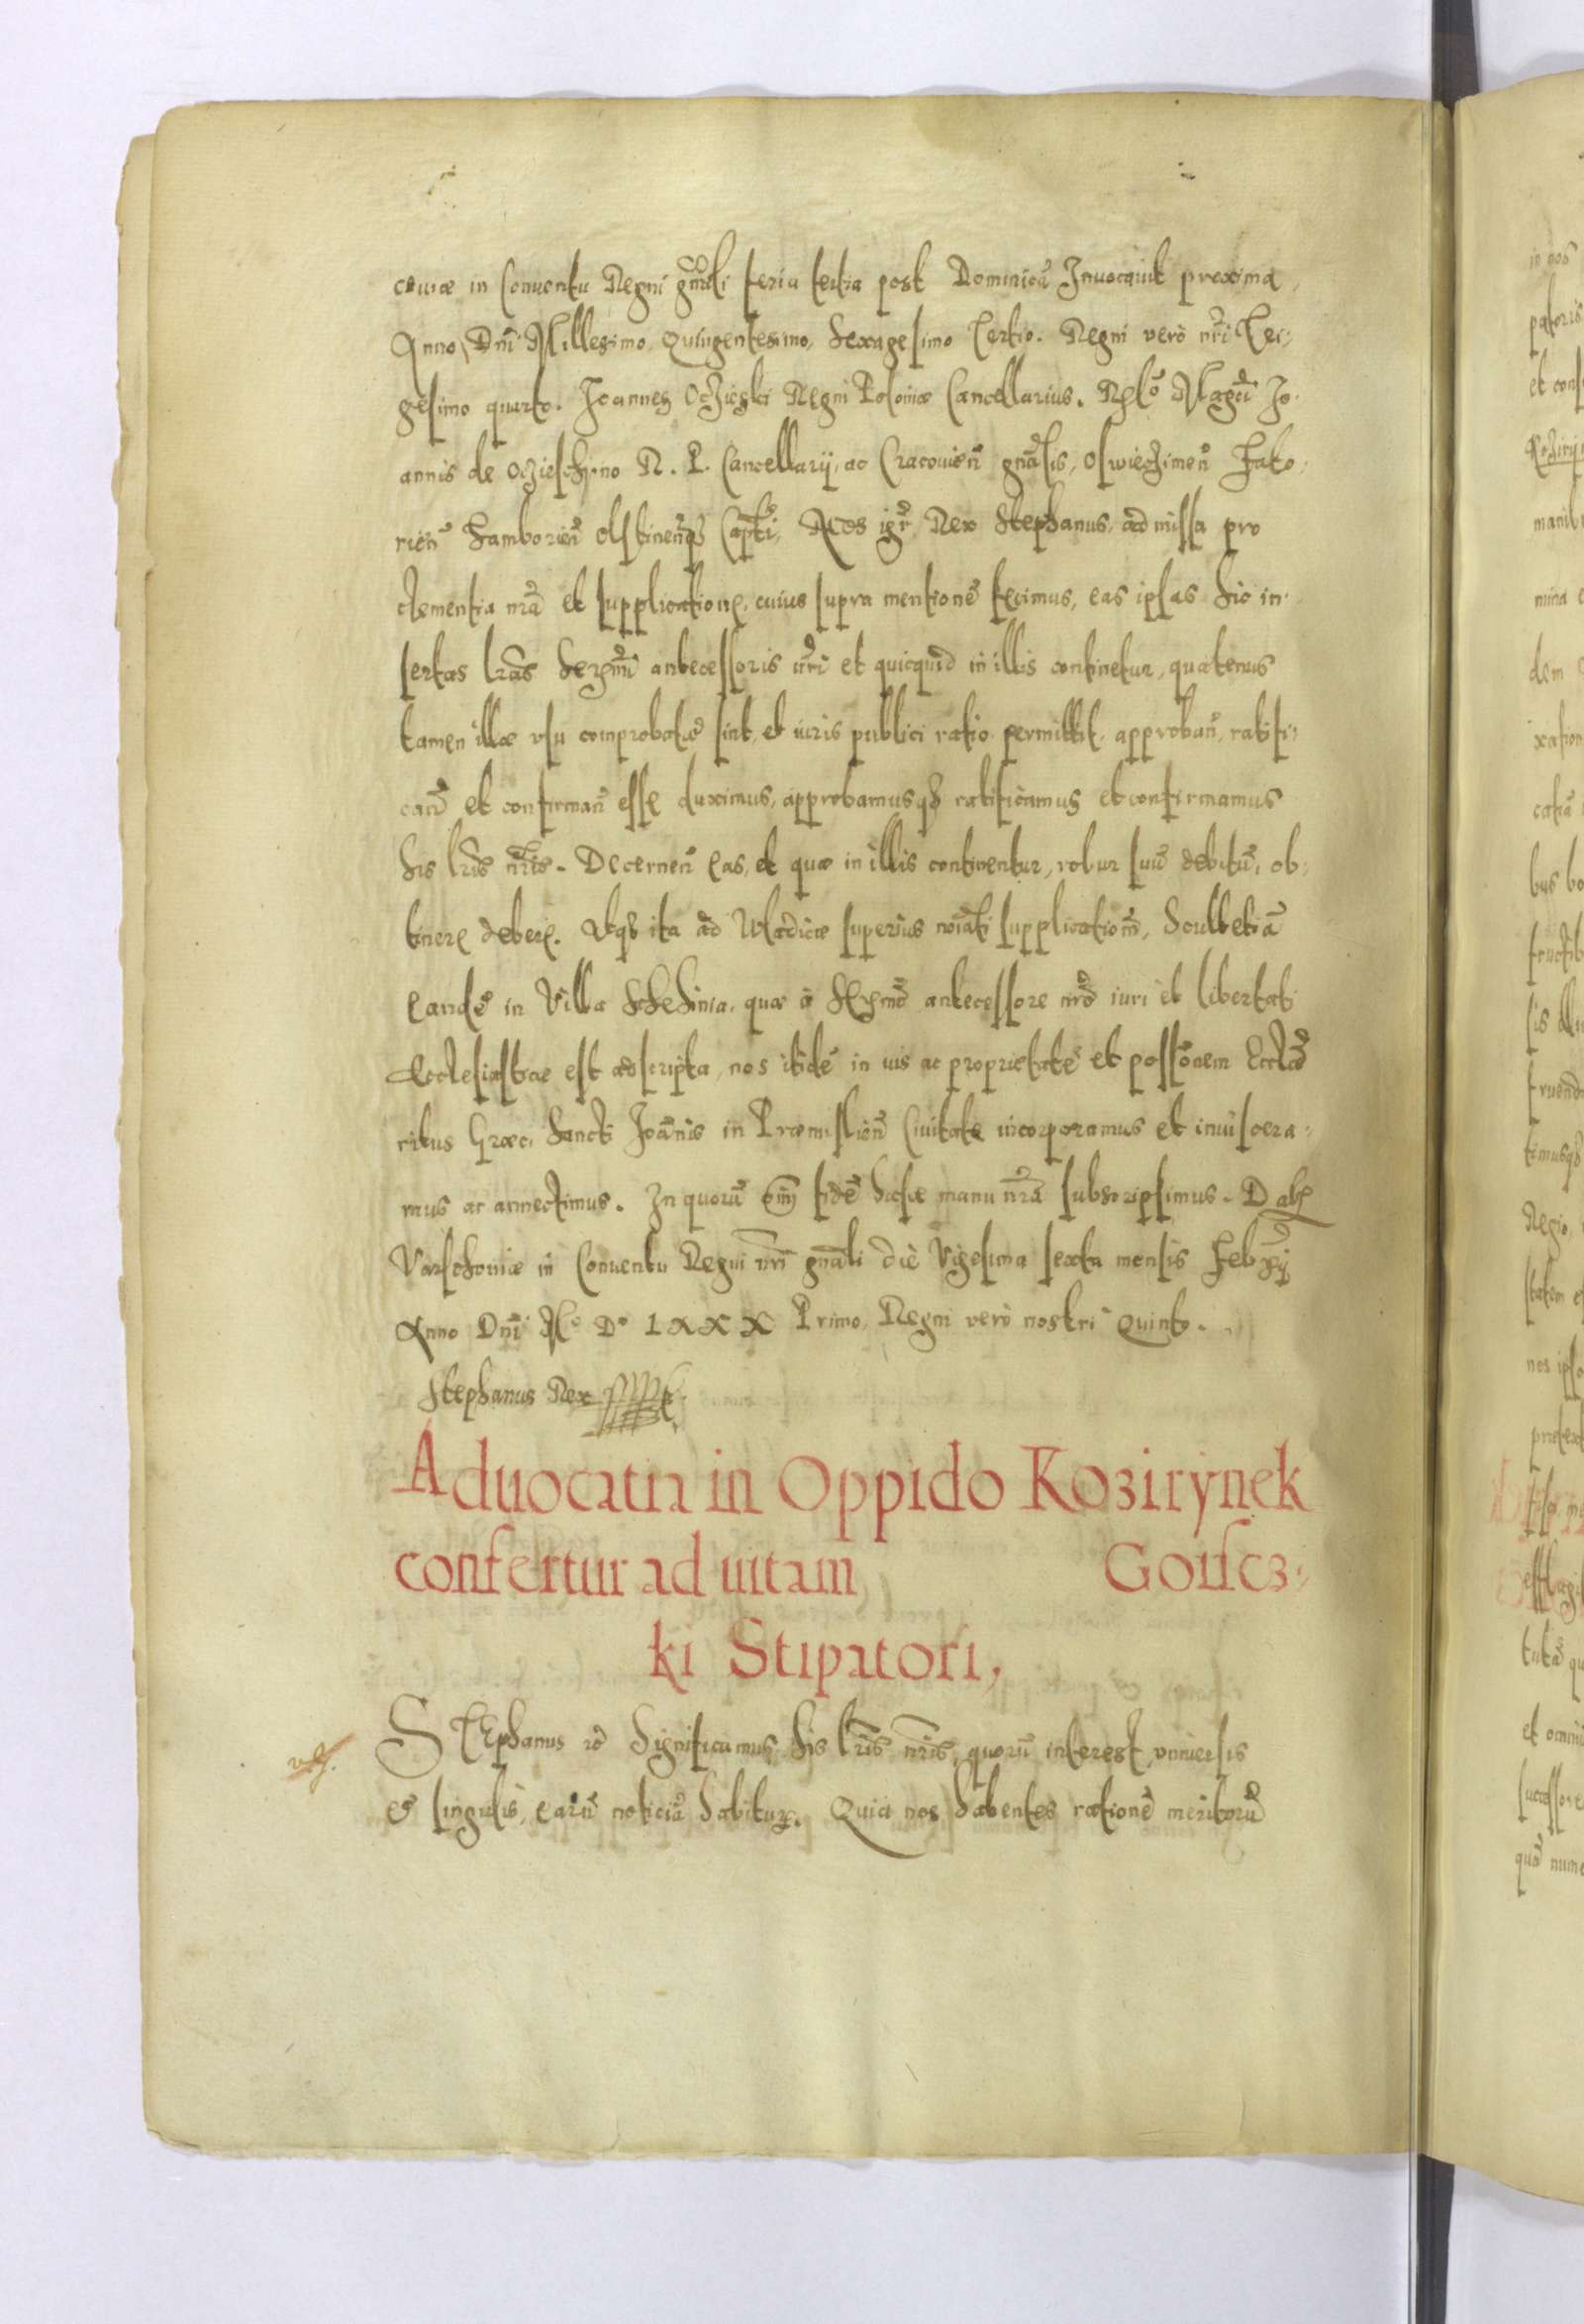 couiæ in Conuentu Regni gn̄rali feria tertia post Dominicā Inuocauit proxima,
Anno Dn̄i Millesimo Quingentesimo, Sexagesimo Tertio. Regni verò nr̄i Tri-
gesimo quarto. Joannes Oczieski Regni Poloniæ Cancellarius. Relō Mag̃ci Jo-
annis de Oczieschino R. P. Cancellarij, ac Cracouien̄ gn̄alis, Oswieczimen̄ Zato-
rien̄ Samborien̄ Olstinen̄q₃ Capt̄i, Nos igr̄ Rex Stephanus, admissa pro
clementia nr̄a et supplicatione, cuius supra mentionē fecimus, eas ipsas sic in-
sertas lr̄as Serm̄i antecessoris nr̄i et quicquid in illis continetur, quatenus
tamen illæ vsu comprobatæ sint, et iuris publici ratio permittit, approban̄, ratifi-
can̄ et confirman̄ esse duximus, approbamusq₃ ratificamus et confirmamus
his lr̄is nr̄is. Decernen̄ eas, et quæ in illis continentur, robur suū debitū, ob-
tinere debere. Utq₃ ita ad Wladicæ superius noīati supplicationē, Scultetiā
eandē in Villa Schehinia, quæ à Serm̄o antecessore nr̄o iuri et libertati
Ecclesiasticæ est adscripta, nos itidē in ius ac proprietatē et possōnem Eccl̄æ
ritus Græci Sancti Joānis in Præmislien̄ Ciuitate incorporamus et inuiscera-
mus ac annectimus. In quorū om̄ fidē hasce manu nr̄a subscripsimus. Dat
Varschouiæ in Conuentu Regni nr̄i gn̄ali die Vigesima sexta mensis Febrij
Anno Dn̄i M° D° LXXX Primo, Regni verò nostri Quinto.
Stephanus Rex
Aduocatia in Oppido Kozirynek
confertur ad uitam Goiscz-
ki Stipatori,
STEphanus rc̄ Significamus his lr̄is nr̄is, quorū interest, vniuersis
et singulis, earū noticiā habituris. Quia nos habentes rationē meritorū